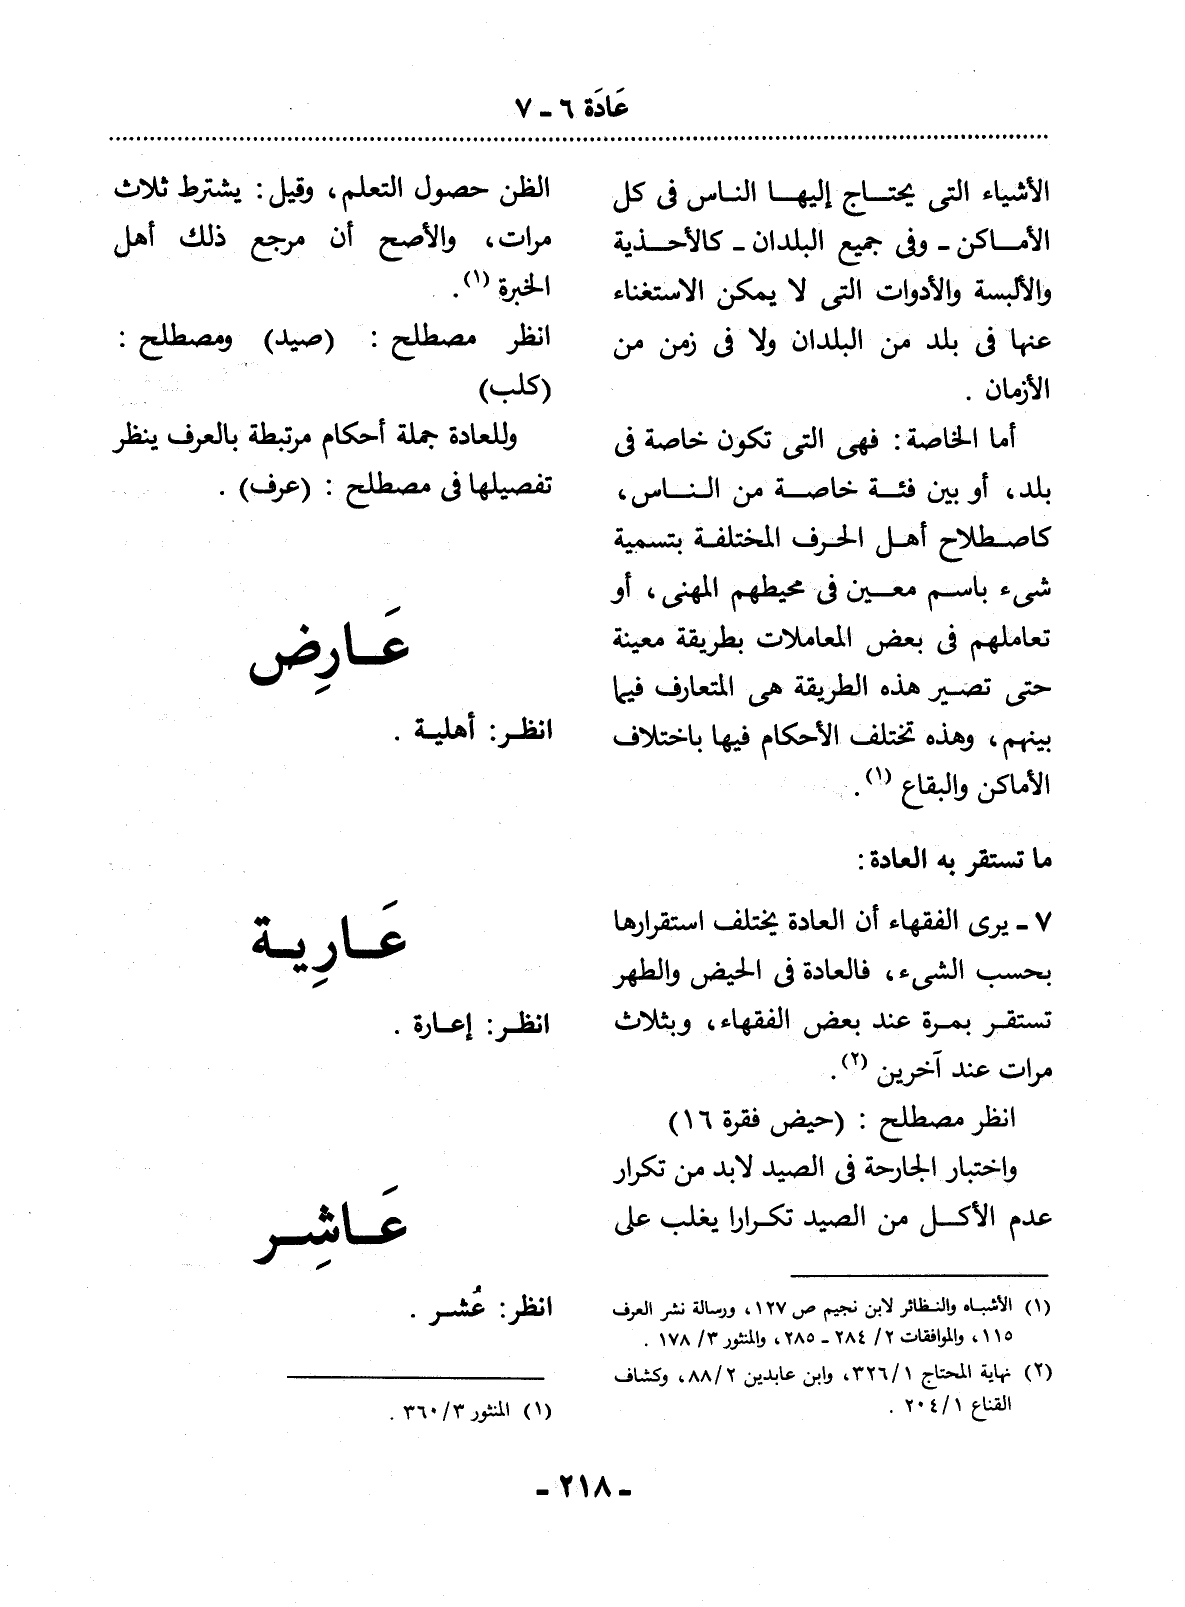 عَادَة ٦ ـ ٧
الأشياء التى يحتاج إليها الناس فى كل
الأماكن ـ وفى جميع البلدان ـ كالأحذية
والألبسة والأدوات التى لا يمكن الاستغناء
عنها فى بلد من البلدان ولا فى زمن من
الأزمان .
أما الخاصة : فهى التى تكون خاصة فى
بلد، أو بين فئة خاصة من الناس،
كاصطلاح أهل الحرف المختلفة بتسمية
شىء باسم معين فى محيطهم المهنى، أو
تعاملهم فى بعض المعاملات بطريقة معينة
حتى تصير هذه الطريقة هى المتعارف فيما
بينهم، وهذه تختلف الأحكام فيها باختلاف
الأماكن والبقاع (١).
ما تستقر به العادة:
٧ ـ يرى الفقهاء أن العادة يختلف استقرارها
بحسب الشىء، فالعادة فى الحيض والطهر
تستقر بمرة عند بعض الفقهاء، وبثلاث
مرات عند آخرين (٢).
انظر مصطلح : (حيض فقرة ١٦)
واختبار الجارحة فى الصيد لابد من تكرار
عدم الأكل من الصيد تكرارا يغلب على
(١) الأشباه والنظائر لابن نجيم ص ١٢٧، ورسالة نشر العرف
١١٥، والموافقات ٢/ ٢٨٤ ـ ٢٨٥، والمنثور ٣/ ١٧٨ .
(٢) نهاية المحتاج ١/ ٣٢٦، وابن عابدين ٢/ ٨٨، وكشاف
القناع ١/ ٢٠٤ .
الظن حصول التعلم، وقيل: يشترط ثلاث
مرات، والأصح أن مرجع ذلك أهل
الخبرة (١).
انظر مصطلح : (صيد) ومصطلح :
(كلب)
وللعادة جملة أحكام مرتبطة بالعرف ينظر
تفصيلها فى مصطلح : (عرف) .
عَـارِض
انظر: أهلية .
عَـارِيـة
انظر: إعارة .
عَـاشِـر
انظر: عُشر .
(١) المنثور ٣/ ٣٦٠ .
ـ ٢١٨ ـ